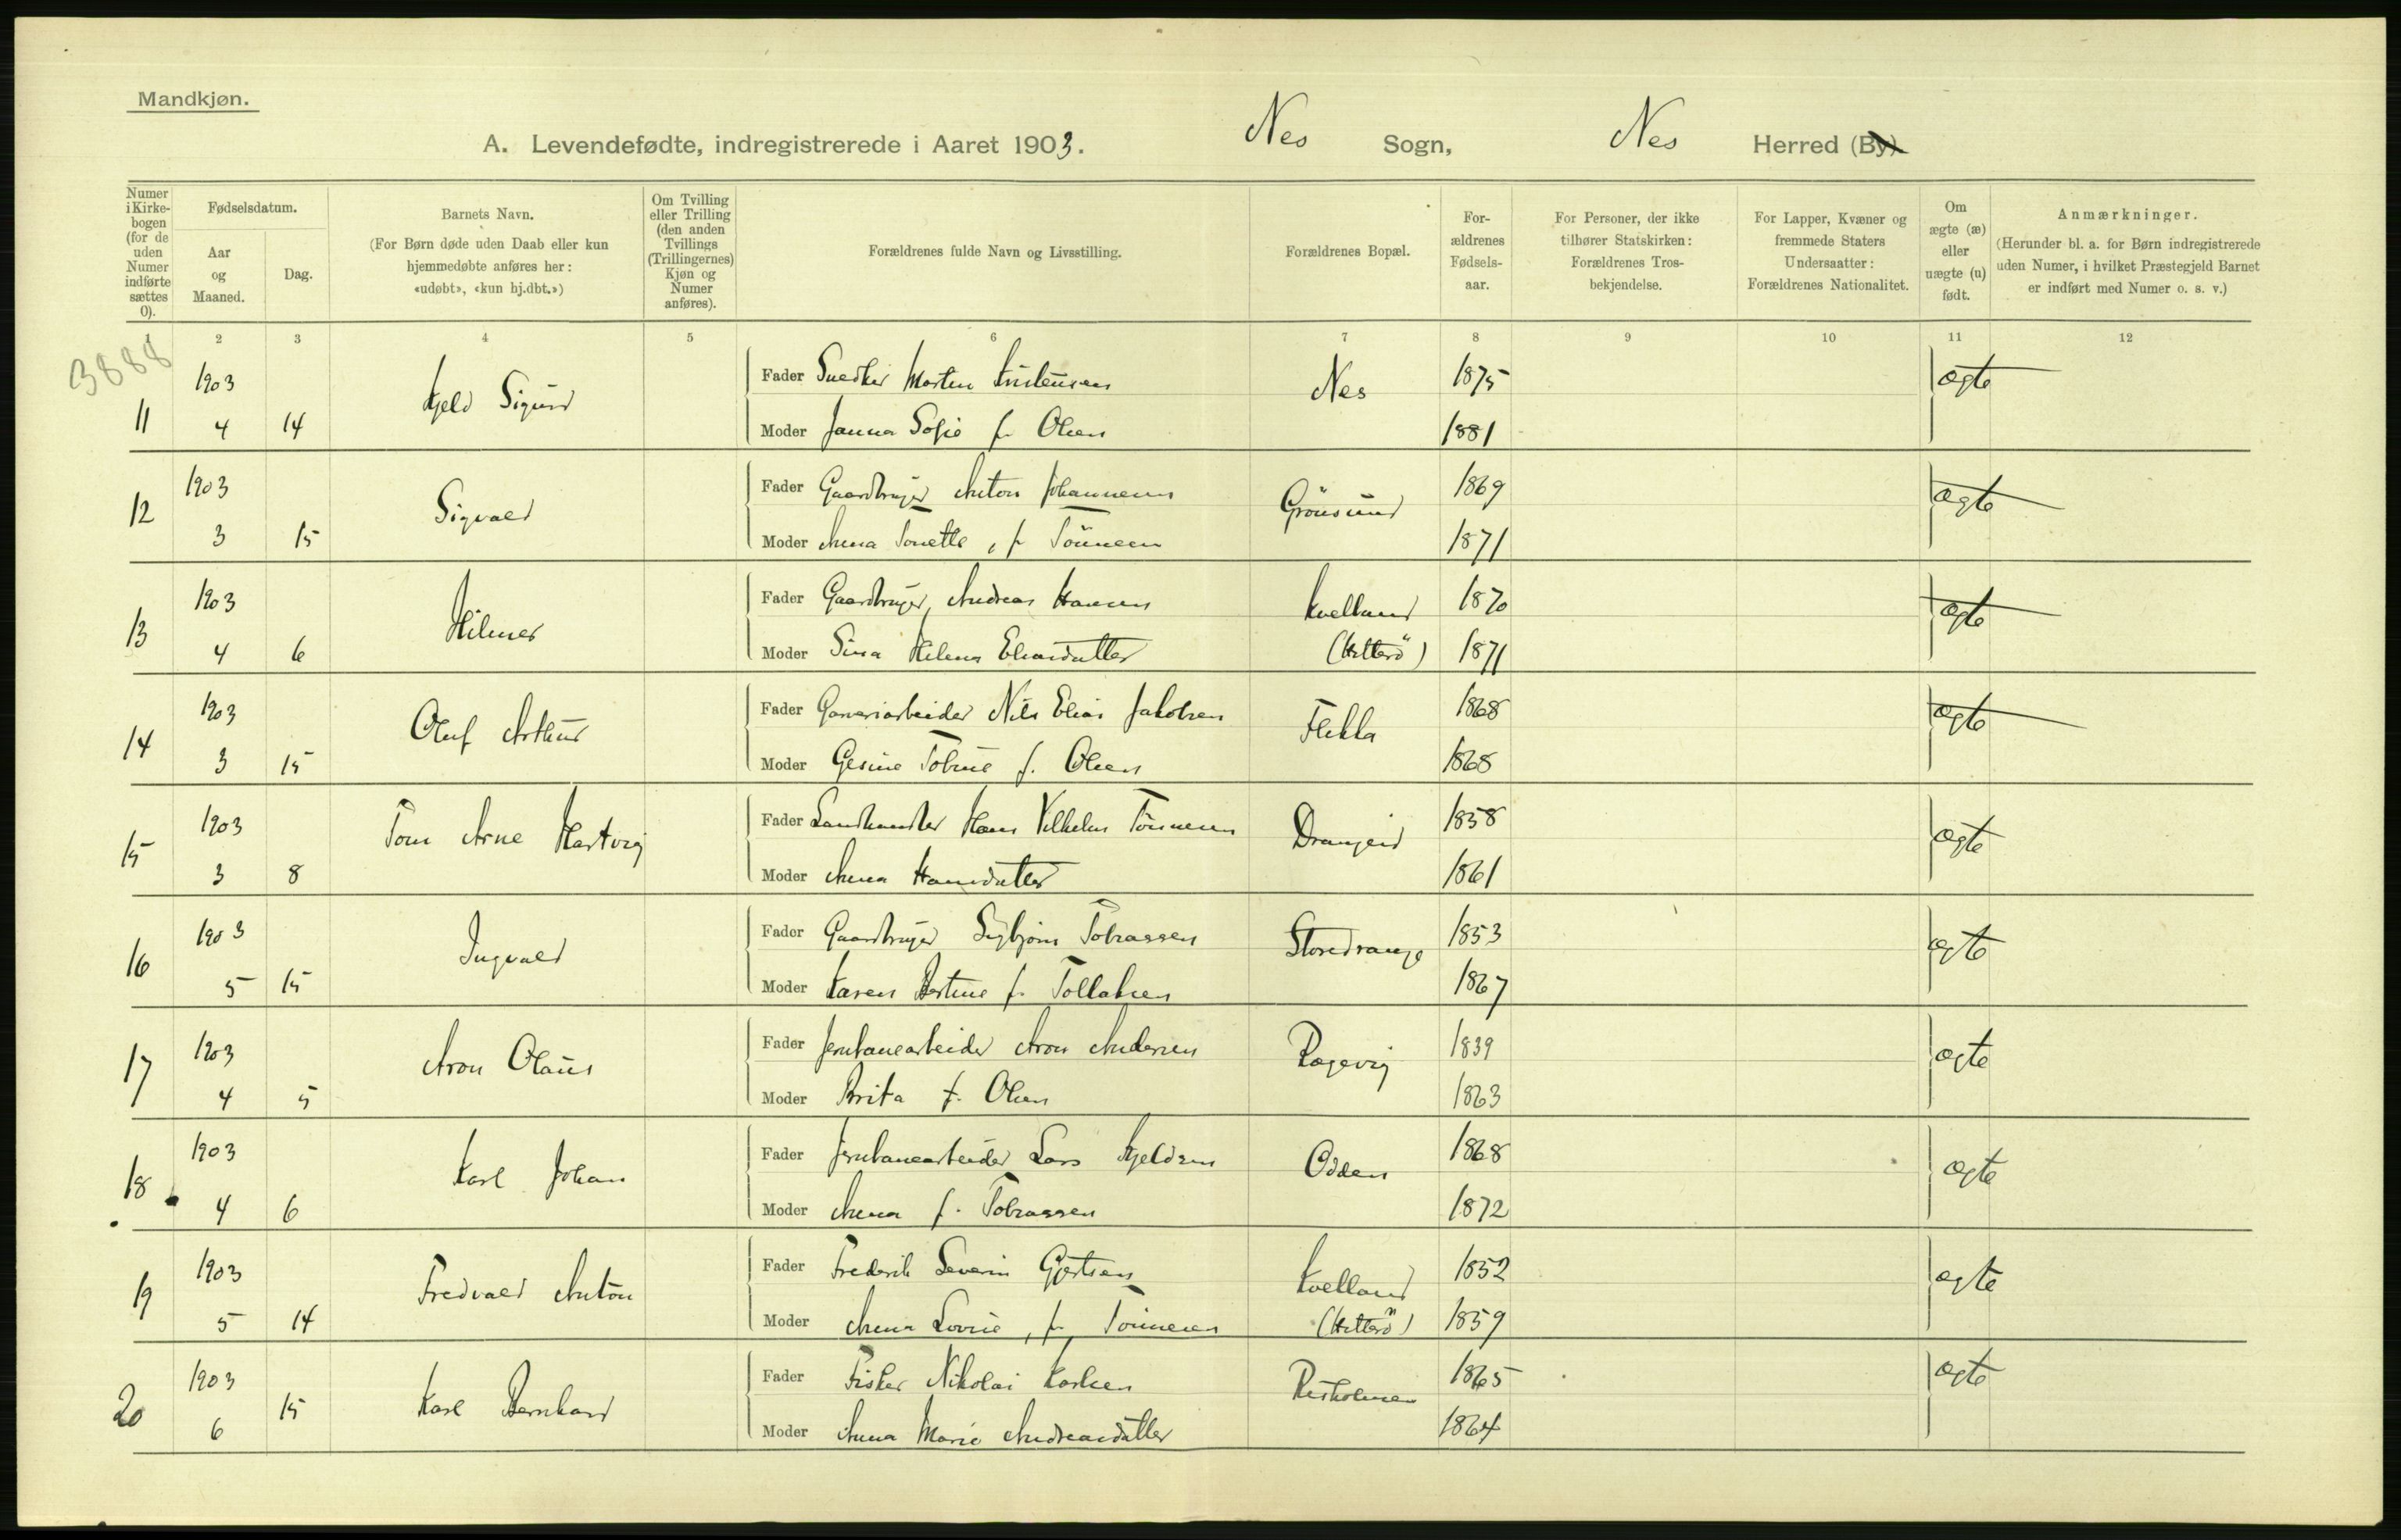 Mandkjøn.
A. Levendefødte, indregistrerede i Aaret 1903. Nes Sogn, Nes Herred (By)
Numer i Kirke-bogen (for de uden Numer indførte sættes 0).
Fødselsdatum.
Aar og Maaned.
Dag.
Barnets Navn.
(For Børn døde uden Daab eller kun hjemmedøbte anføres her: «udøbt», «kun hj.dbt.»)
Om Tvilling eller Trilling (den anden Tvillings (Trillingernes) Kjøn og Numer anføres).
Forældrenes fulde Navn og Livsstilling.
Forældrenes Bopæl.
For-ældrenes Fødsels-aar.
For Personer, der ikke tilhører Statskirken: Forældrenes Tros-bekjendelse.
For Lapper, Kvæner og fremmede Staters Undersaatter: Forældrenes Nationalitet.
Om ægte (æ) eller uægte (u) født.
Anmærkninger.
(Herunder bl. a. for Børn indregistrerede uden Numer, i hvilket Præstegjeld Barnet er indført med Numer o. s. v.)
1 2 3 4 5 6 7 8 9 10 11 12
3888
11 1903 4 14 Kjeld Sigurd
Fader Snedker Morten Kristensen Nes 1875 ægte
Moder Janna Sofie f. Olsen 1881
12 1903 3 15 Sigvald
Fader Gaardbruger Anton Johannesen Grönsund 1869 ægte
Moder Anna Tonette, f. Tönnesen 1871
13 1903 4 6 Hilmer
Fader Gaardbruger, Andreas Hansen Kvelland 1870 ægte
Moder Sina Helena Eliasdatter (Hitterö) 1871
14 1903 3 15 Oluf Arthur
Fader Garveriarbeider Nils Elias Jakobsen Flikka 1868 ægte
Moder Gesine Tobine f. Olsen 1868
15 1903 3 8 Tom Arne Hartvig
Fader Landhandler Hans Vilhelm Tönnesen Drangeid 1858 ægte
Moder Anna Hansdatter 1861
16 1903 5 15 Ingvald
Fader Gaardbruger Sigbjörn Tobiassen Storedrange 1853 ægte
Moder Karen Bertine f. Tollaksen 1867
17 1903 4 5 Aron Olaus
Fader Jernbanearbeider Aron Andersen Rægevig 1839 ægte
Moder Brita f. Olsen 1863
18 1903 4 6 Karl Johan
Fader Jernbanearbeider Lars Kjeldsen Odden 1868 ægte
Moder Anna f. Tobiassen 1872
19 1903 5 14 Fredvald Anton
Fader Frederik Severin Gjertsen Kvelland 1852 ægte
Moder Anna Lovise, f. Tönnesen (Hitterö) 1859
20 1903 6 15 Karl Bernhard
Fader Fisker Nikolai Karlsen Risholmen 1865 ægte
Moder Anna Marie Andreasdatter 1864